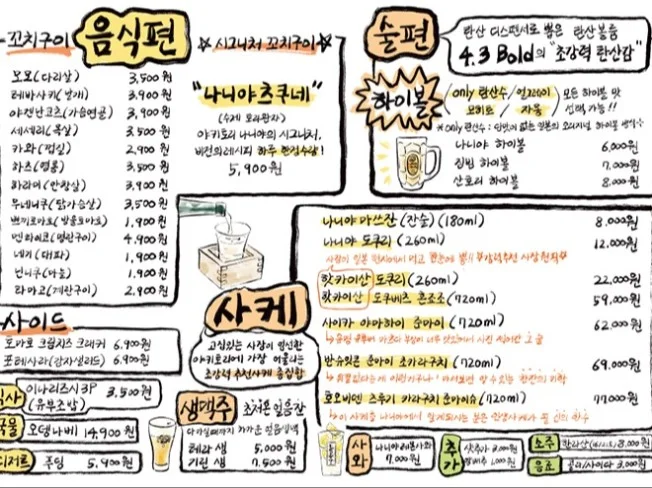 꼬치구이
음식편
모모(다리살) 3,500원
테바사키(날개) 3,900원
야겐난코츠(가슴연골) 3,900원
세세리(목살) 3,500원
카와(껍질) 2,900원
하츠(염통) 3,500원
하라미(안창살) 3,900원
무네니쿠(닭가슴살) 3,500원
쁘띠토마토(방울토마토) 1,900원
멘타이코(명란구이) 4,900원
네기(대파) 1,900원
닌니쿠(마늘) 1,900원
타마고(계란구이) 2,900원
☆시그니처 꼬치구이☆
"나니야츠쿠네"
(수제 모듬완자)
야키토리 나니야의 시그니처,
비건의레시피 하루 한정수량!
5,900원
사이드
토마토 크림치즈 크래커 6,900원
포테사라(감자샐러드) 6,900원
식사
이나리즈시3P 3,500원
(유부초밥)
국물
오뎅나베 14,900원
디저트
푸딩 5,900원
술편
탄산 디스펜서로 뽑은 탄산볼륨
4.3 Bold의 "초강력 탄산감"
하이볼
/only 탄산수/진저에일/ 모든 하이볼 맛
모히토/자몽/ 선택 가능!!
※only탄산수: 단맛이 없는 일본의 오리지널 하이볼 방식☆
나니야 하이볼 6,000원
짐빔 하이볼 7,000원
산토리 하이볼 8,000원
사케
고심있는 사장이 엄선한
야키토리에 가장 어울리는
초강력추천사케 총집합
나니야 마쓰잔(잔술)(180ml) 8,000원
나니야 도쿠리(260ml) 12,000원
핫카이산 도쿠리(260ml) 22,000원
핫카이산 도쿠베츠 혼죠조(720ml) 59,000원
사이카 야마하이 준마이(720ml) 62,000원
반슈잇콘 준마이 초카라구치(720ml) 69,000원
호오비덴 츠루기 카라구치 준마이슈(720ml) 77,000원
생맥주 초저온 얼음잔
테라 생 5,000원
기린 생 7,500원
사와
나니야레몬사와
7,000원
추가
샷추가 2,000원
1,000원
소주
한라산 8,000원
음료
콜라/사이다 3,000원